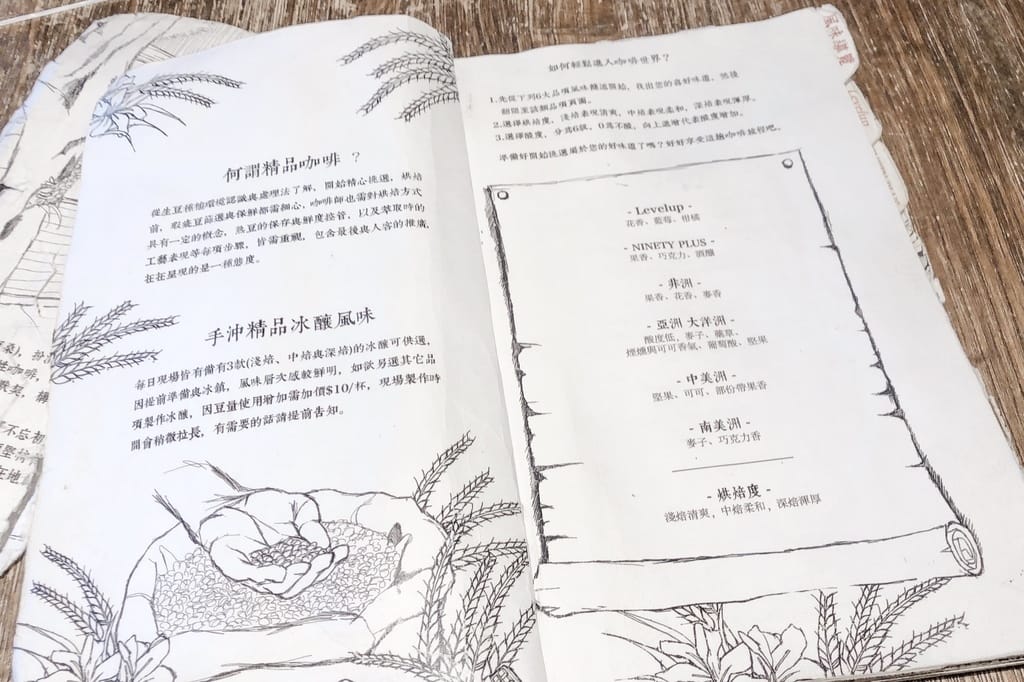 何謂精品咖啡 ?
從生豆種植環境認識與處理法了解，開始精心挑選，烘焙
前，瑕疵豆篩選與保鮮都需細心，咖啡師也需對烘焙方式
具有一定的概念，熟豆的保存與鮮度控管，以及萃取時的
工藝表現等每項步驟，皆需重視，包含最後與人客的推廣，
在在呈現的是一種態度。
手沖精品冰釀風味
每日現場皆有備有3款(淺焙、中焙與深焙)的冰釀可供選，
因提前準備與冰鎮，風味層次感較鮮明，如欲另選其它品
項製作冰釀，因豆量使用增加需加價$10/杯，現場製作時
間會稍微拉長，有需要的話請提前告知。
如何輕鬆進入咖啡世界？
1.先從下列6大品項風味簡述開始，找出您的喜好味道，然後
翻閱至該類品項頁面。
2.選擇烘焙度，淺焙表現清爽，中焙表現柔和，深焙表現渾厚。
3.選擇酸度，分為6級，0為不酸，向上遞增代表酸度增加。
準備好開始挑選屬於您的好味道了嗎？好好享受這趟咖啡旅程吧。
- Levelup -
花香、藍莓、柑橘
- NINETY PLUS -
果香、巧克力、酒釀
- 非洲 -
果香、花香、麥香
- 亞洲 大洋洲 -
酸度低，麥子、藥草、
煙燻與可可香氣、葡萄酸、堅果
- 中美洲 -
堅果、可可、部份帶果香
- 南美洲 -
麥子、巧克力香
- 烘焙度 -
淺焙清爽，中焙柔和，深焙渾厚
風味導覽
Levelup